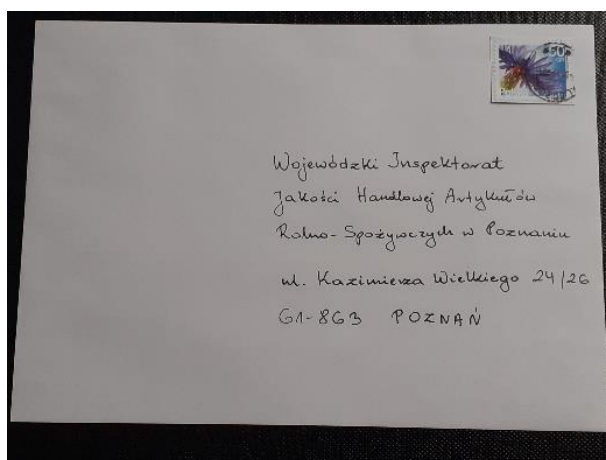 Wojewódzki Inspektorat
Jakości Handlowej Artykułów
Rolno-Spożywczych w Poznaniu
ul. Kazimierza Wielkiego 24/26
61-863 POZNAŃ